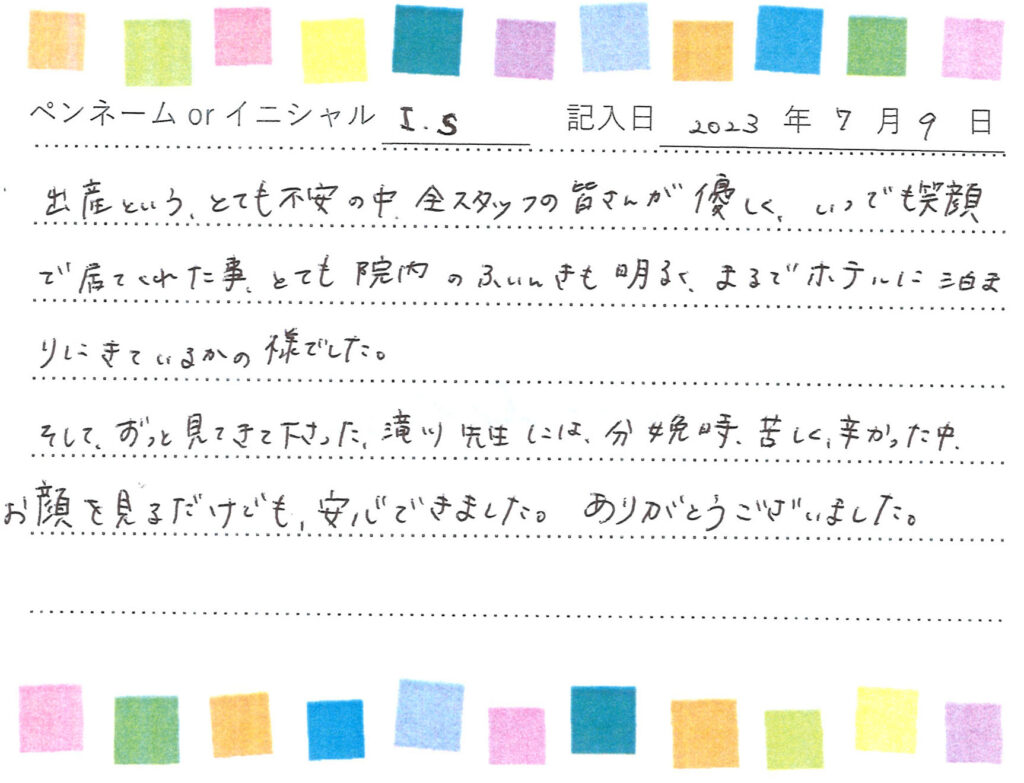 ペンネーム or イニシャル I.S 記入日 2023 年 7 月 9 日
出産という、とても不安の中、全スタッフの皆さんが優しく、いつでも笑顔
で居てくれた事、とても院内のふいんきも明るく、まるでホテルに泊ま
りにきているかの様でした。
そして、ずっと見てきて下さった、滝川先生には、分娩時、苦しく、辛かった中、
お顔を見るだけでも、安心できました。 ありがとうございました。